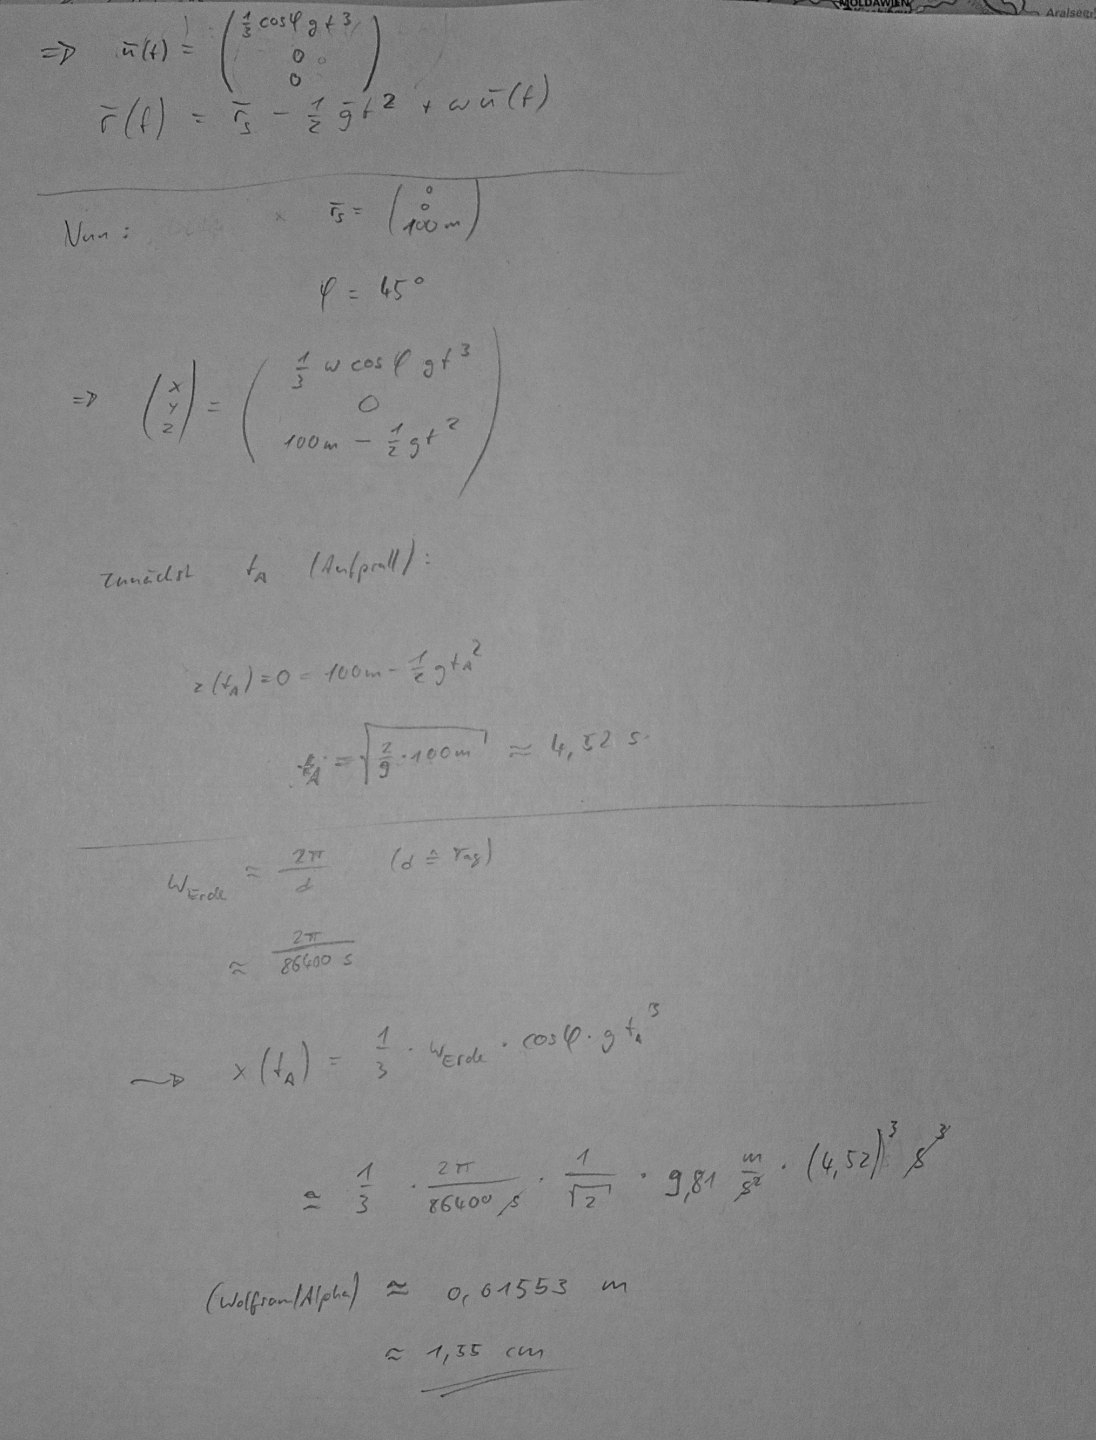 MOLDAWIEN
Aralsee
=> ū(t) = (1/3 cosφ g t³, 0, 0)
r̄(t) = r̄s - 1/2 ḡt² + ω ū(t)
Nun: r̄s = (0, 0, 100m)
φ = 45°
=> (x, y, z) = (1/3 ω cosφ gt³, 0, 100m - 1/2 gt²)
zunächst tA (Aufprall):
z(tA) = 0 = 100m - 1/2 g tA²
tA = √(2/g · 100m) ≈ 4,52 s.
ωErde ≈ 2π/d (d ≙ Tag)
≈ 2π/86400 s
→ x(tA) = 1/3 · ωErde · cosφ · g tA³
≅ 1/3 · 2π/86400 s · 1/√2 · 9,81 m/s² · (4,52)³ s³
(Wolfram/Alpha) ≈ 0,01553 m
≈ 1,55 cm